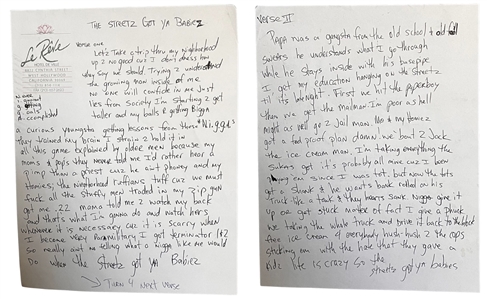 THE STREETZ GOT YA BABIEZ
Le Rêve
HOTEL DE VILLE
WEST HOLLYWOOD
CALIFORNIA
VERSE ONE
Letz Take a trip thru my neighborhood
up 2 no good cuz I don't dress
they say we should. Trying 2 understand
the growing man inside of me
No one will confide in me Just
lies from Society Im Starting 2 get
taller and my balls R getting Bigga
a curious youngsta getting lessons from these Niggas
they trained my Brain I strain 2 hold it in
all this game followed by older men because my
moms & pops they never told me I'd rather hear a
pimp than a priest cuz he ain't phoney and my
homies, the neighborhood ruffians tuff cuz we must
fuck all the stuffy men traded in my 3ip gun
got me .22 mama told me 2 watch my back
and that's what I'm gonna do and watch hers
whenever it is necessary cuz it is scary when
I become very Paramilitary I got terminator 1&2
So really ain't no telling what a Nigga like me would
Do when the Streetz got ya Babiez
Turn 4 Next Verse
Verse III
Papa was a gangsta from the old school
he understands what I go through
while he stays inside with his
I get my education hanging on the streetz
til its late night. First we hit the paperboy
then we get the mailman Im poor as hell
might as well go 2 Jail man. Me & my homiez
got a fool proof plan damn! we bout 2 Jack
the ice cream man. I'm taking everything the
suckers got it's probably all mine cuz I been
buying ice since I was a tot, but now the tots
got a Skunk & he wants bank rolled on his
truck like a task & they hearts sank Nigga give it
up or get stuck matter of fact I give a phuck
we taking the whole truck and drive it back to the
free ice cream 4 everybody hush-hush 2 the cops
sticking em with the hate that they gave a
kidz life is crazy so the
streetz got ya babies